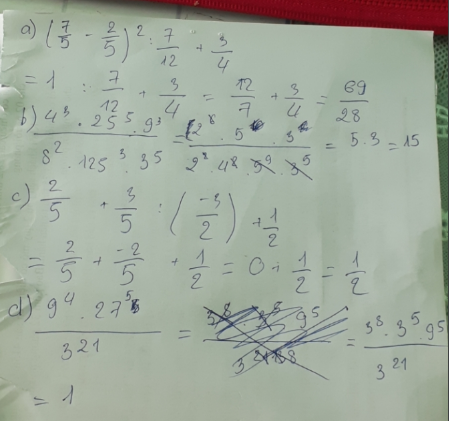 a) (7/5 - 2/5)² : 7/12 + 3/4
= 1 : 7/12 + 3/4 = 12/7 + 3/4 = 69/28
b) 4³ · 25⁵ · 9³ / 8² · 125³ · 3⁵ = = 5 · 3 = 15
c) 2/5 + 3/5 : (-3/2) + 1/2
= 2/5 + -2/5 + 1/2 = 0 + 1/2 = 1/2
d) 9⁴ · 27⁵ / 3²¹ = = 3⁸ · 3⁵ · 9⁵ / 3²¹
= 1